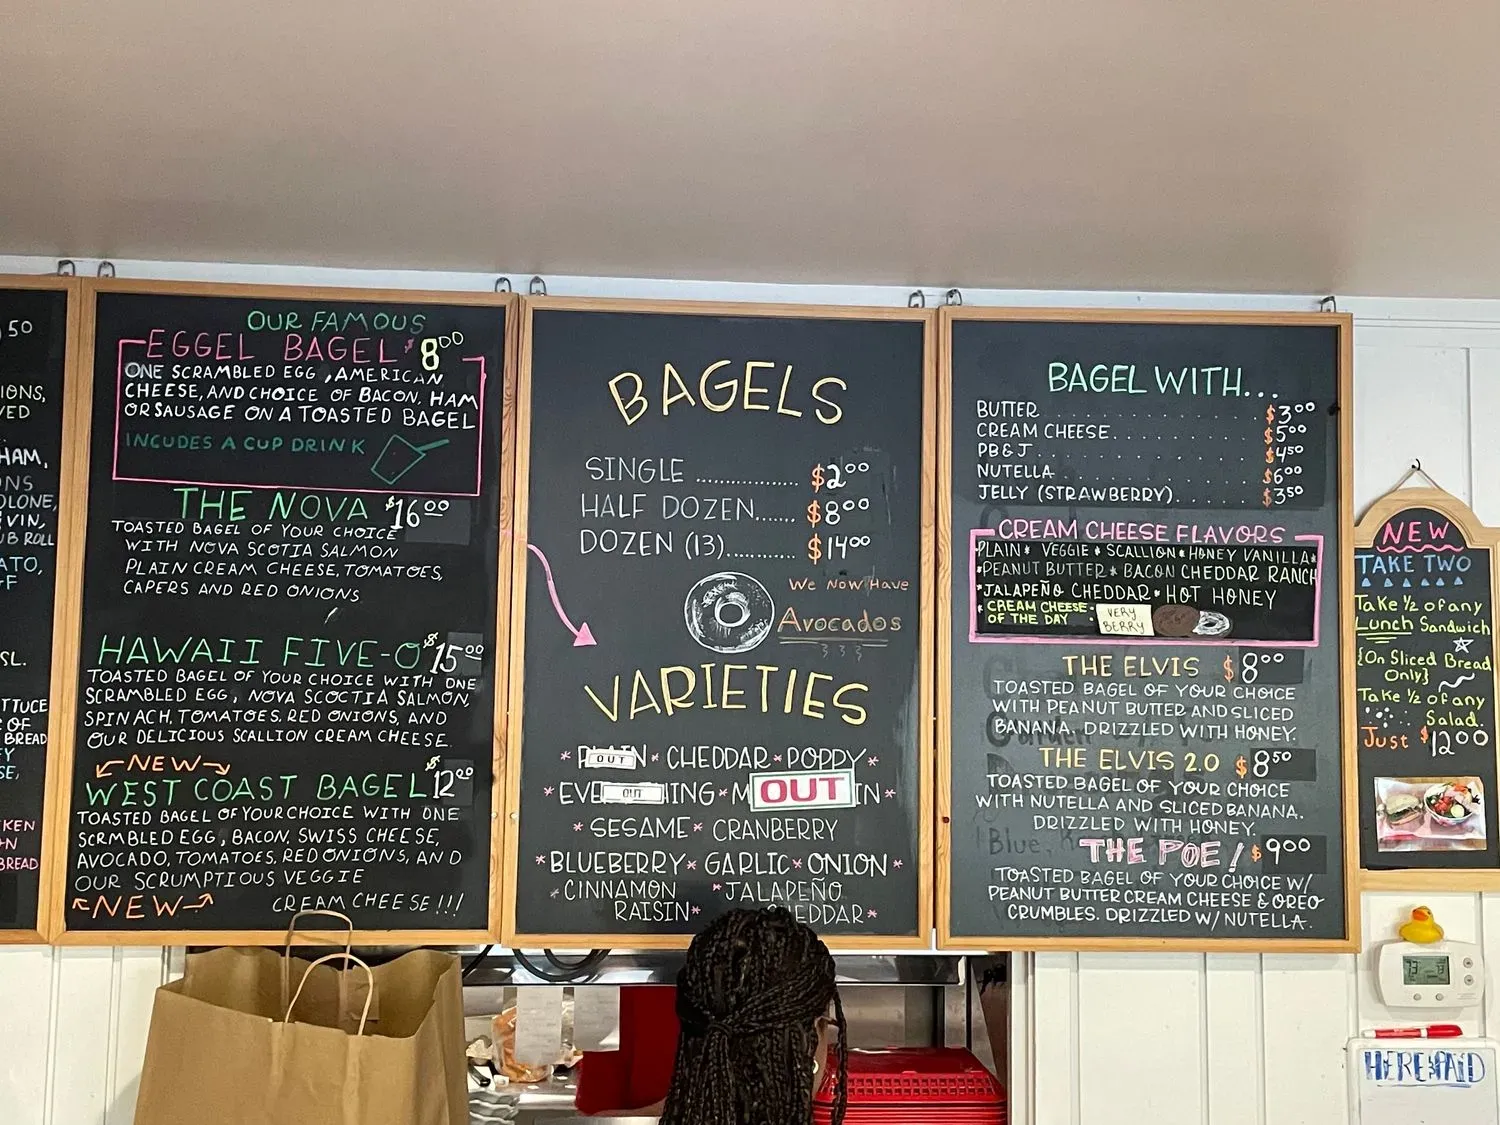 50
IONS,
VED
HAM,
ONS
OLONE,
VIN,
UB ROLL
ATO,
F
SL.
TTUCE
OF
BREAD
SE,
KEN
N
BREAD
OUR FAMOUS
EGGEL BAGEL $8.00
ONE SCRAMBLED EGG, AMERICAN
CHEESE, AND CHOICE OF BACON, HAM
OR SAUSAGE ON A TOASTED BAGEL
INCUDES A CUP DRINK
THE NOVA $16.00
TOASTED BAGEL OF YOUR CHOICE
WITH NOVA SCOTIA SALMON
PLAIN CREAM CHEESE, TOMATOES,
CAPERS AND RED ONIONS
HAWAII FIVE-O $15.00
TOASTED BAGEL OF YOUR CHOICE WITH ONE
SCRAMBLED EGG, NOVA SCOCTIA SALMON,
SPINACH, TOMATOES, RED ONIONS, AND
OUR DELICIOUS SCALLION CREAM CHEESE.
NEW
WEST COAST BAGEL $12.00
TOASTED BAGEL OF YOUR CHOICE WITH ONE
SCRMBLED EGG, BACON, SWISS CHEESE,
AVOCADO, TOMATOES, RED ONIONS, AND
OUR SCRUMPTIOUS VEGGIE
NEW CREAM CHEESE!!!
BAGELS
SINGLE .................. $2.00
HALF DOZEN....... $8.00
DOZEN (13)............ $14.00
We Now Have
Avocados
VARIETIES
* OUT * CHEDDAR * POPPY *
* EVE OUT ING * M OUT IN *
* SESAME * CRANBERRY
* BLUEBERRY * GARLIC * ONION *
* CINNAMON * JALAPEÑO
RAISIN * HEDDAR *
BAGEL WITH...
BUTTER . . . . . . . . $3.00
CREAM CHEESE. . . . . . . . $5.00
PB&J . . . . . . . . $4.50
NUTELLA . . . . . . . . $6.00
JELLY (STRAWBERRY). . . . . $3.50
CREAM CHEESE FLAVORS
PLAIN * VEGGIE * SCALLION * HONEY VANILLA *
* PEANUT BUTTER * BACON CHEDDAR RANCH
* JALAPEÑO CHEDDAR * HOT HONEY
* CREAM CHEESE VERY
OF THE DAY BERRY
THE ELVIS $8.00
TOASTED BAGEL OF YOUR CHOICE
WITH PEANUT BUTTER AND SLICED
BANANA. DRIZZLED WITH HONEY.
THE ELVIS 2.0 $8.50
TOASTED BAGEL OF YOUR CHOICE
WITH NUTELLA AND SLICED BANANA.
DRIZZLED WITH HONEY.
THE POE! $9.00
TOASTED BAGEL OF YOUR CHOICE W/
PEANUT BUTTER CREAM CHEESE & OREO
CRUMBLES. DRIZZLED W/ NUTELLA.
NEW
TAKE TWO
Take 1/2 of any
Lunch Sandwich
{On Sliced Bread
Only}
Take 1/2 of any
Salad.
Just $12.00
HERE PAID